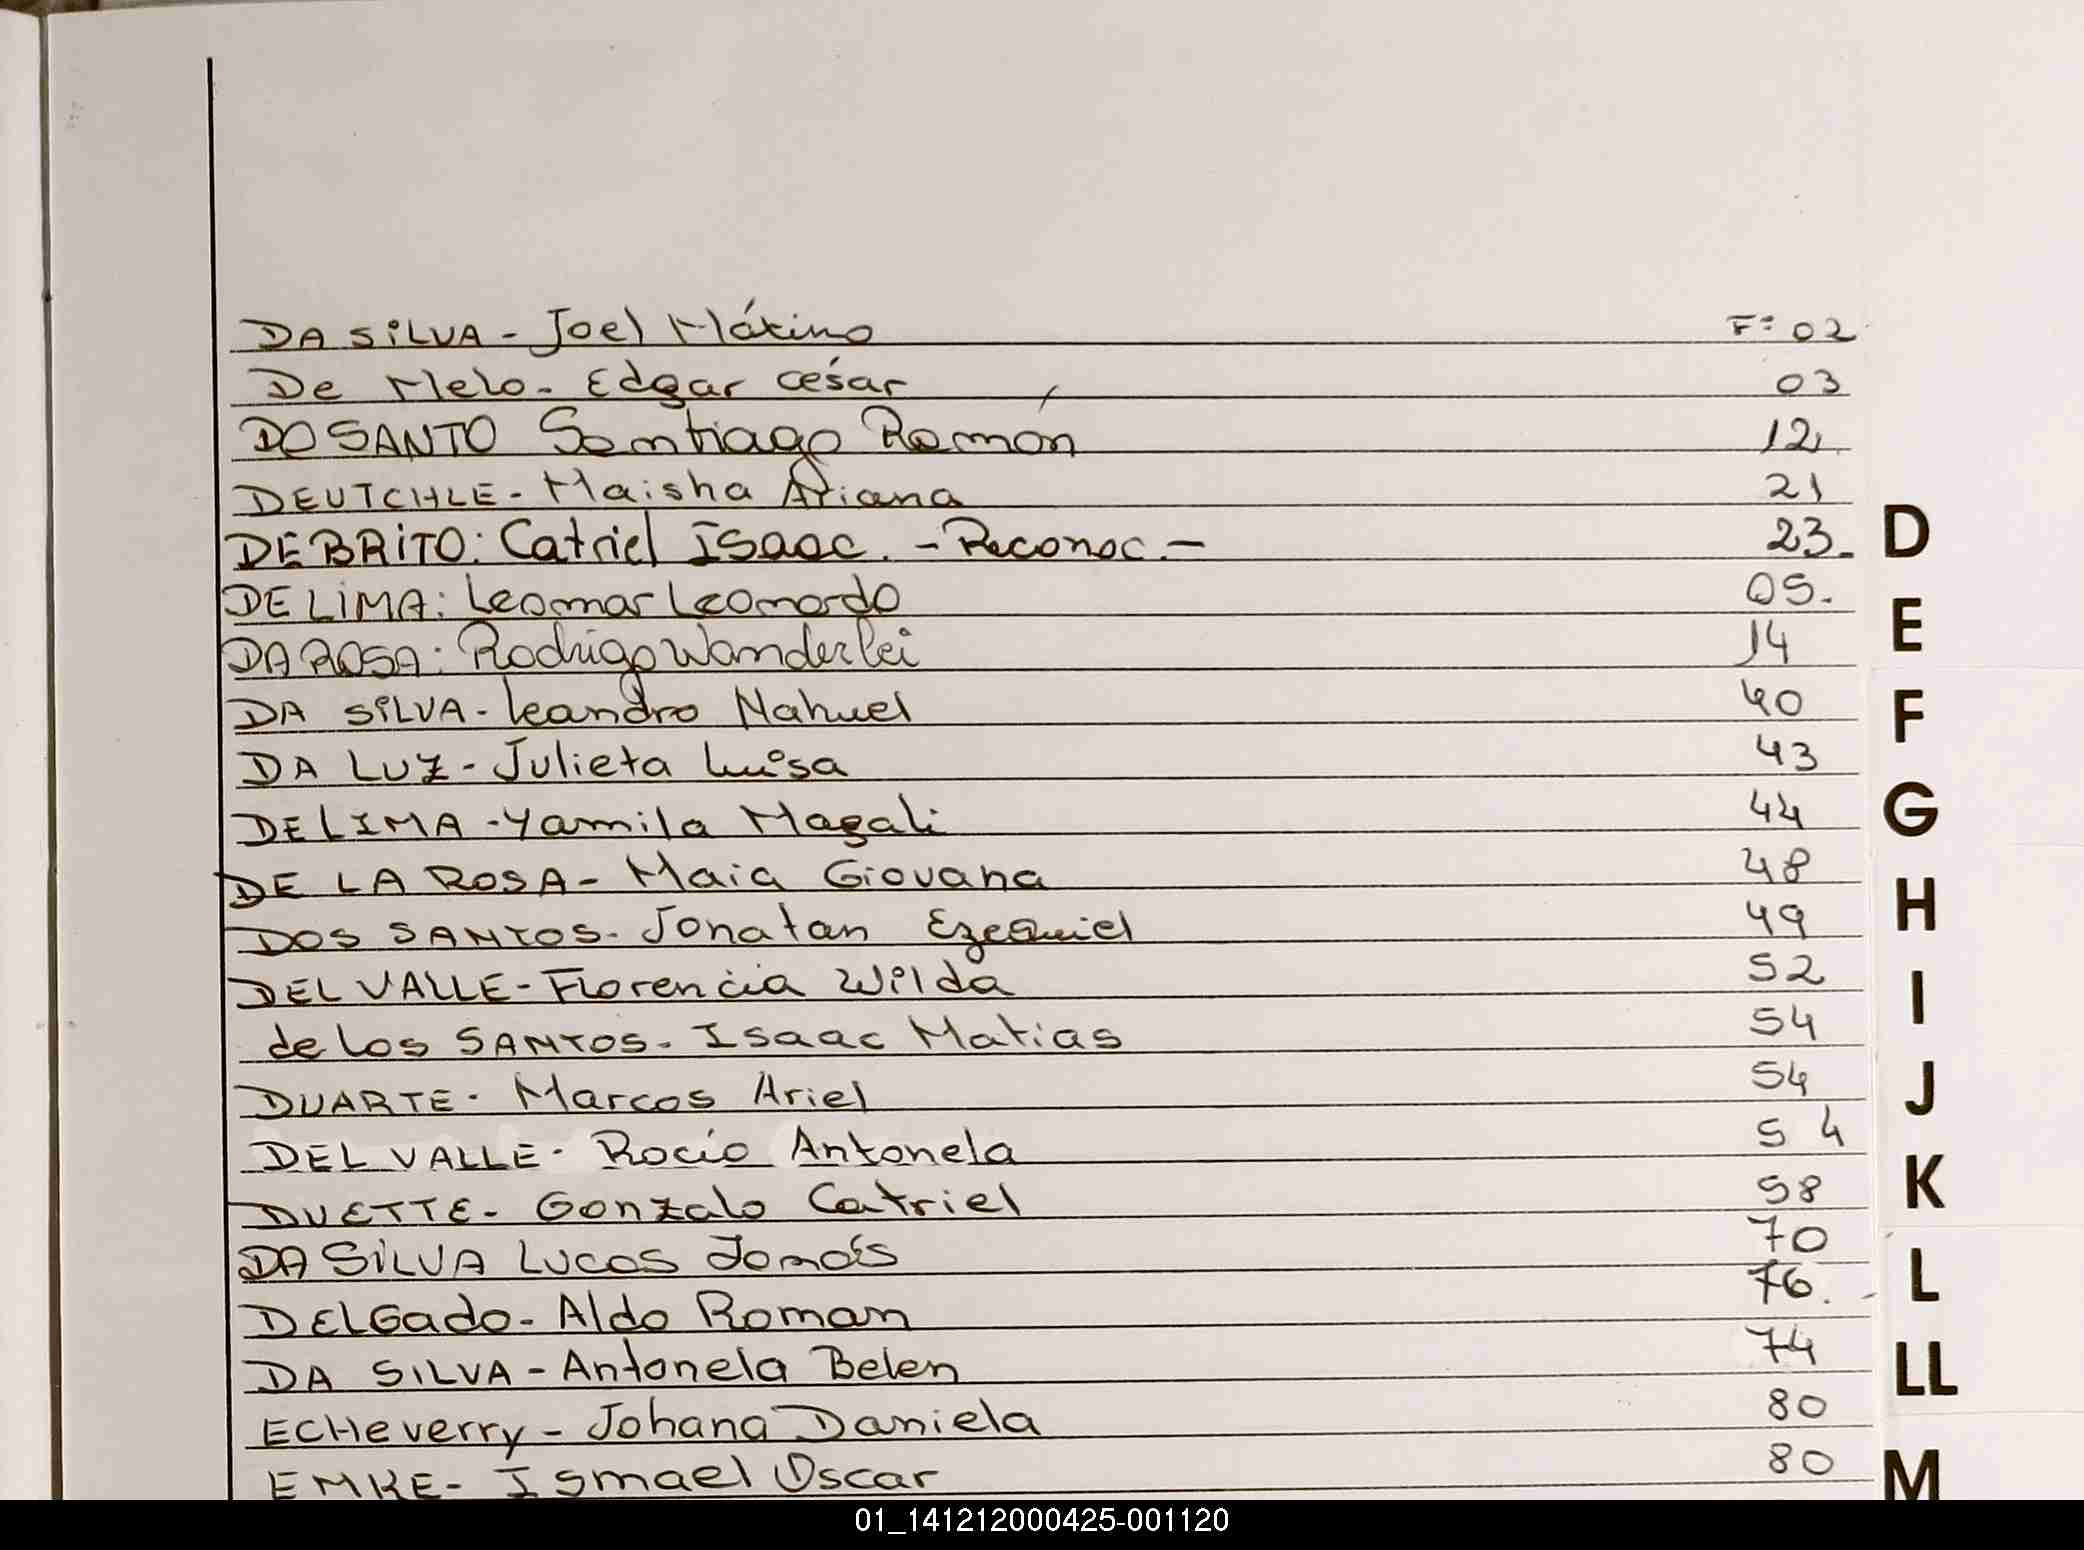 DA SiLVA - Joel Máximo F° 02
De Melo - Edgar César 03
DO SANTO Santiago Ramón 12
DEUTCHLE - Maisha Ariana 21
DE BRiTO: Catriel Isaac. - Reconoc. - 23.
DE LiMA: Leomar Leonardo 05.
DA ROSA: Rodrigo Wanderlei 14
DA SiLVA - Leandro Nahuel 40
DA LUZ - Julieta Luisa 43
DE LIMA - Yamila Magali 44
DE LA ROSA - Maia Giovana 48
DOS SANTOS - Jonatan Ezequiel 49
DEL VALLE - Florencia Wilda 52
de los SANTOS - Isaac Matias 54
DUARTE - Marcos Ariel 54
DEL VALLE - Rocío Antonela 54
DUETTE - Gonzalo Catriel 58
DA SiLVA Lucas Tomás 70
DELGado - Aldo Roman 76.
DA SILVA - Antonela Belen 74
ECHeverry - Johana Daniela 80
EMKE - Ismael Oscar 80
D
E
F
G
H
I
J
K
L
LL
M
01_141212000425-001120